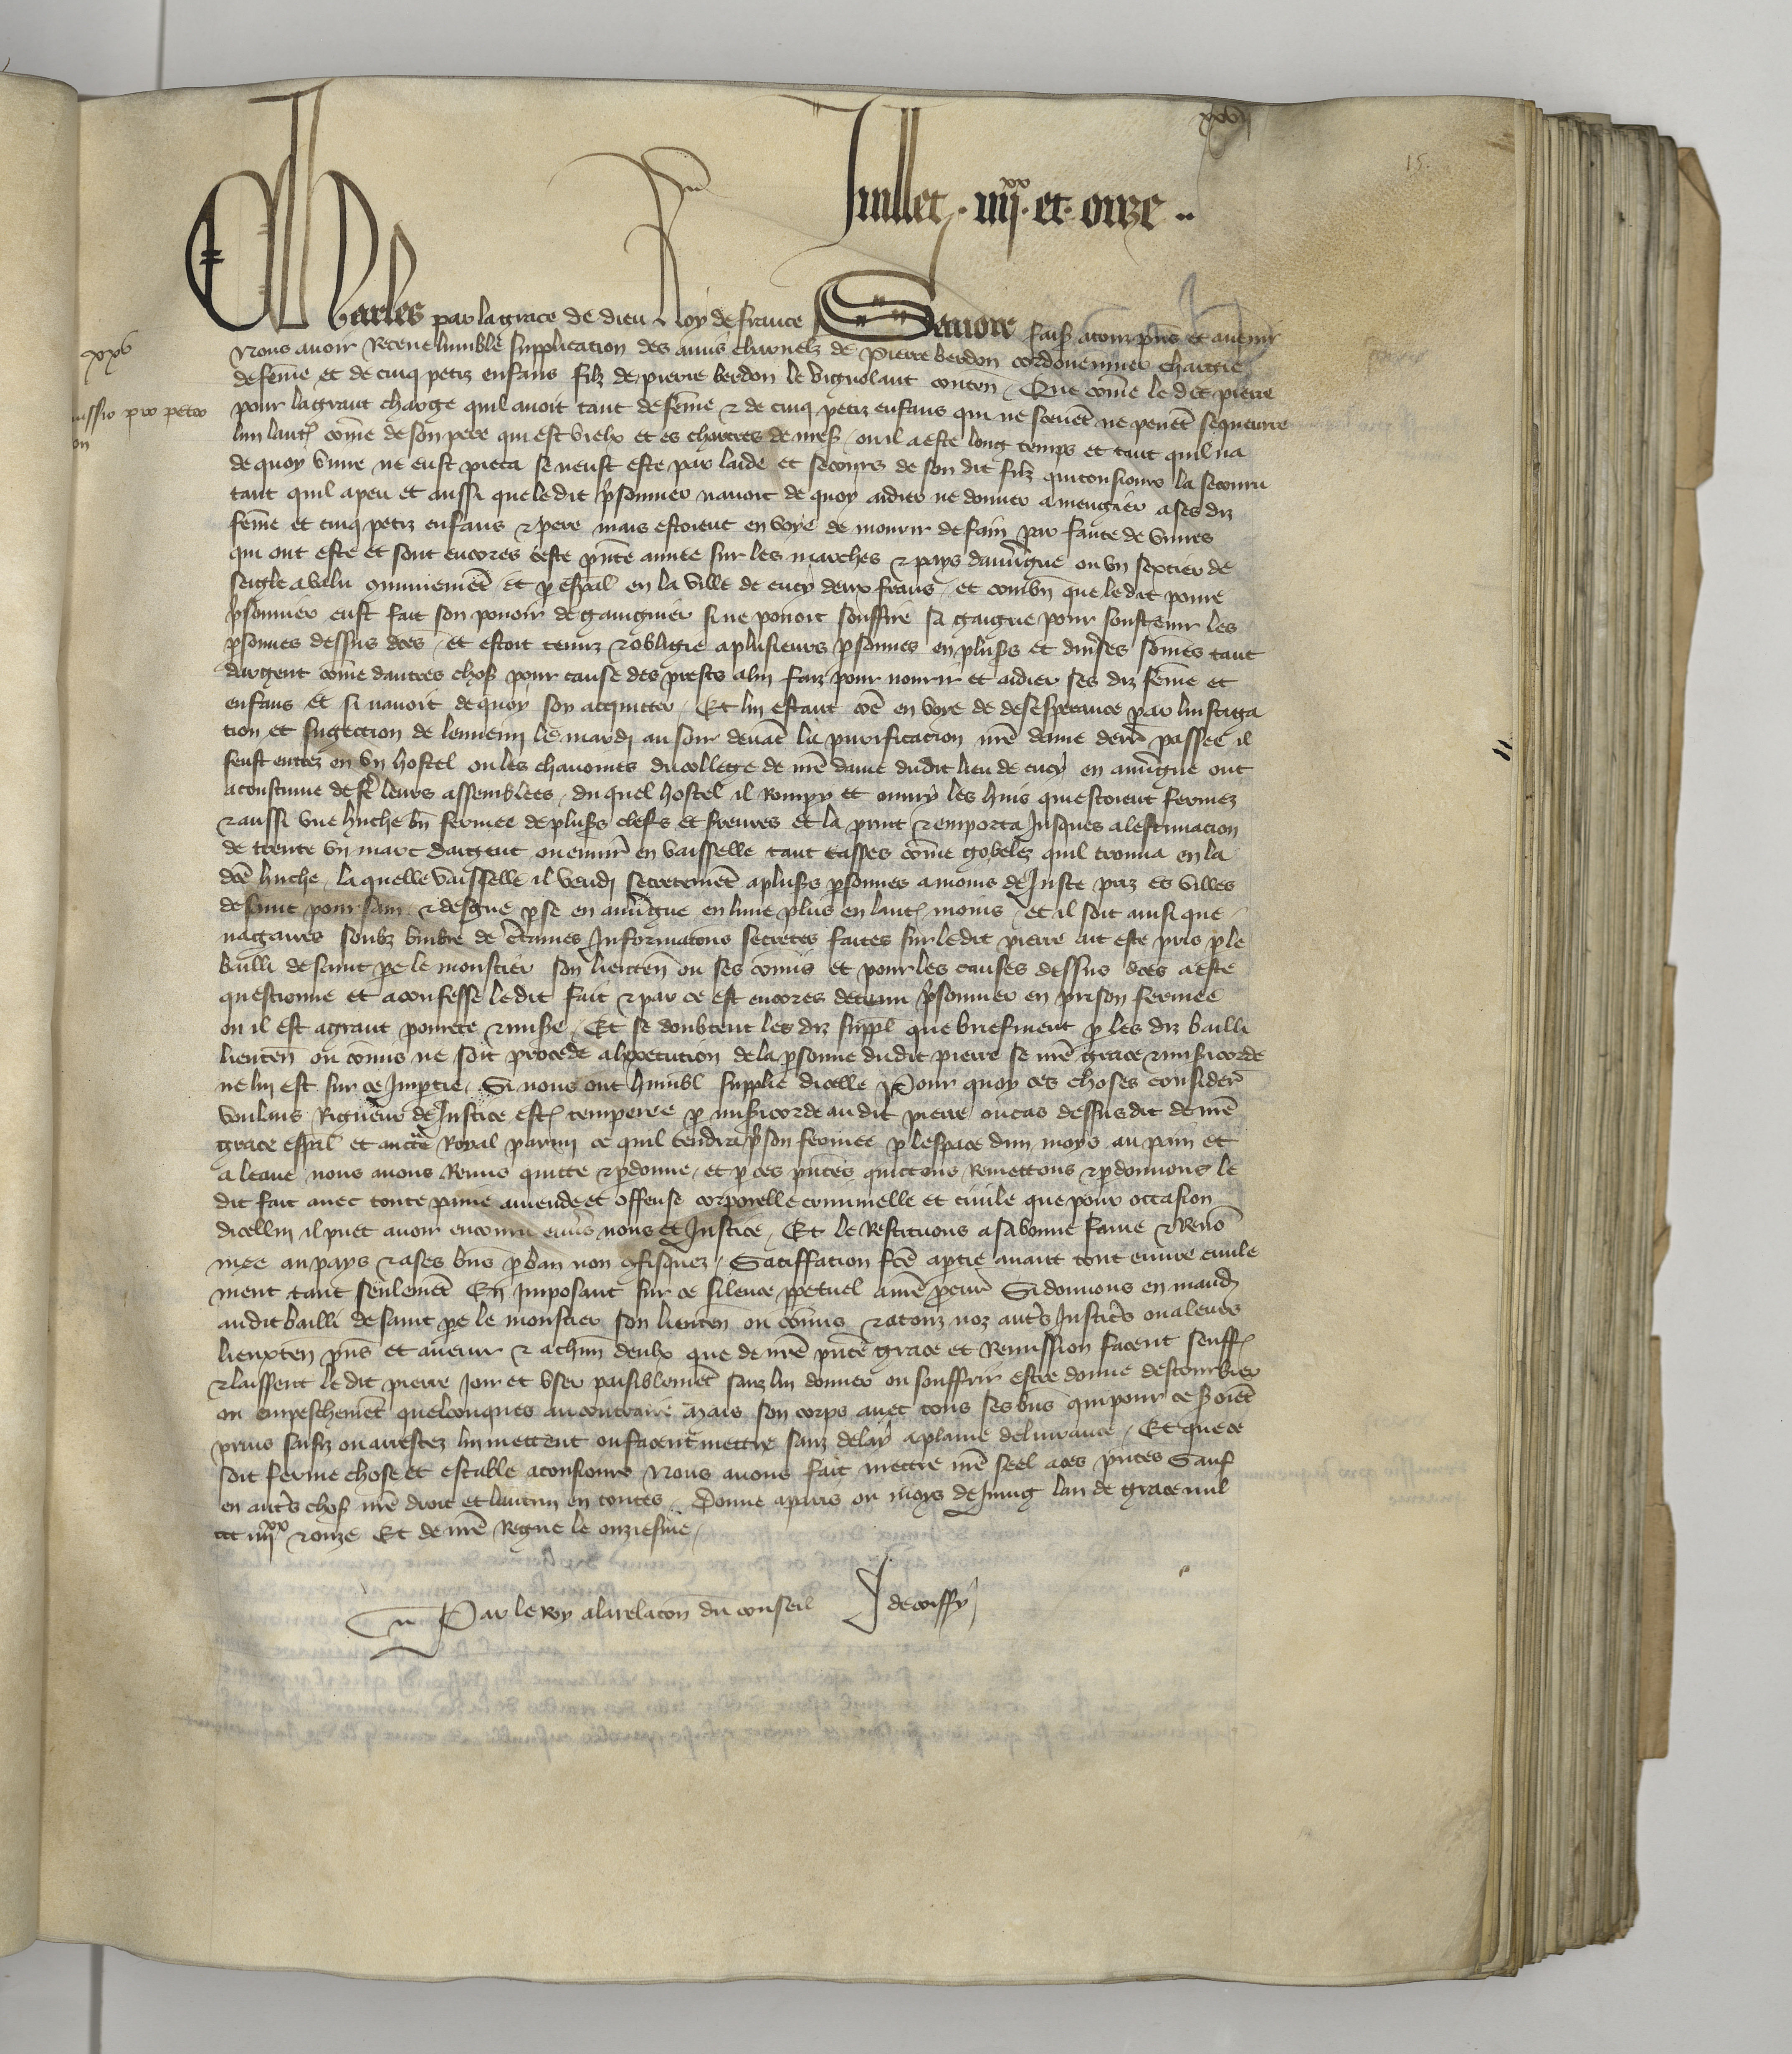 xxv
15.
Juillet . iiijxx. et . onze ..
Charles par la grace de dieu Roy de france Savoir faisons atouz presens et avenir
xxv
Nous avoir Receue lumble supplication des amis charnelz de Pierre berdon cordouennier chargie
de feme et de cinq petiz enfans filz de pierre berdon le vignolant conten Que come le dit pierre
missio pro petro
on
pour la grant charge quil avoit tant de feme & de cinq petiz enfans qui ne scevet ne pevet sequeurre
lun laut come de son pere qui est vielx et es chartres de mess ou il a este long temps et tant quil na
de quoy vivre ne eust pieca se neust este par laide et secours de son dit filz qui tousiours la secouru
tant quil a peu et aussi que le dit psonnier navoit de quoy aidier ne donner a mengier a ses diz
feme et cinq petiz enfans & pere mais estoient en voye de mourir de fain par faute de vivres
qui ont este et sont encores ceste pnte annee sur les marches & pays dauvgne ou un sextier de
seigle a valu comunement et p espal en la ville de cucy deux frans et combn que le dit pierre
psonnier eust fait son povoir de gaingnier si ne povoit souffire sa gaigne pour soustenir les
psonnes dessus dces et estoit tenuz & obligie a plusieurs psonnes en pluss et divses somes tant
dargent come dautres choses pour cause des prests a lui faiz pour nourir et aidier ses diz feme et
enfans et si navoit de quoy soy acquitter Et lui estant ce en voye de desesperance par linstiga
tion et sugection de lennemi le mardi au soir devat la purificacion nre dame derr passee il
feust entrez en un hostel ou les chanoines du college de nre dame dudit lieu de cucy en auvgne ont
acoustume de fe leurs assemblees du quel hostel il Rompy et ouvry les huis qui estoient fermez
& aussi une huche bn fermee de pluss clefs et sreures et la print & emporta Jusques a lestimacion
de trente un marc dargent ou envir en vaisselle tant tasses come gobelez quil trouva en la
dce huche la quelle vaisselle il vendi secretemet a pluss psonnes a moins de Juste priz es villes
de saint pour sain & desgue pse en auvgne en lune plus en laut moins et il soit ainsi que
nagaires soubz umbre de ctaines Informacons secretes faites sur le dit pierre ait este pris p le
bailli de saint pe le moustier son lieuten ou ses comis et pour les causes dessus dces a este
questionne et a confesse le dit fait & par ce est encores detenu psonnier en prison fermee
ou il est a grant povrete & misere Et se doubtent les diz suppl que briefment p les diz bailli
lieuten ou comis ne soit procede a lexecution de la psonne dudit pierre se nre grace & misicorde
ne lui est sur ce Impartie Si nous ont humbl supplie dicelle Pour quoy ces choses consider
voulans Rigueur de Justice est temperee p misicorde au dit pierre ou cas dessusdit de nre
grace espal et auctte Royal parmi ce quil tendra pson fermee p lespace dun moys au pain et
a leaue nous avons Remis quitte & pdonne et p ces pntes quittons Remettons & pdonnons le
dit fait avec toute paine amende et offense corporelle criminelle et civile que pour occasion
dicellui il puet avoir encouru envs nous et Justice Et le Restituons a sa bonne fame & Reno
mee au pays & a ses bns p ban non cfisquez Satiffacion fce a ptie avant tout euvre civile
ment tant seulemet En Imposant sur ce silence ppetuel a nre pcur Si donnons en mand
au dit bailli de saint pe le moustier son lieuten ou comis & a touz noz auts Justics ou a leurs
lieuxten pns et avenir & a chun deulx que de nre pnte grace et Remission facent seuff
& laissent le dit pierre Joir et user paisiblemet sanz lui donner ou souffrir estre donne destourbier
ou empeschemet quelconques au contraire Mais son corps avec tous ses bns qui pour ce soiet
prins saisiz ou arrestez lui mettent ou facent mettre sanz delay a plaine delivrance Et que ce
soit ferme chose et estable a tousiours Nous avons fait mettre nre seel a ces pntes Sauf
en auts choses nre droit et lautrui en toutes Donne a paris ou moys de Juing lan de grace mil
ccc iiijxx & onze Et de nre Regne le onziesme
Par le Roy a la relacon du conseil J de coiffy